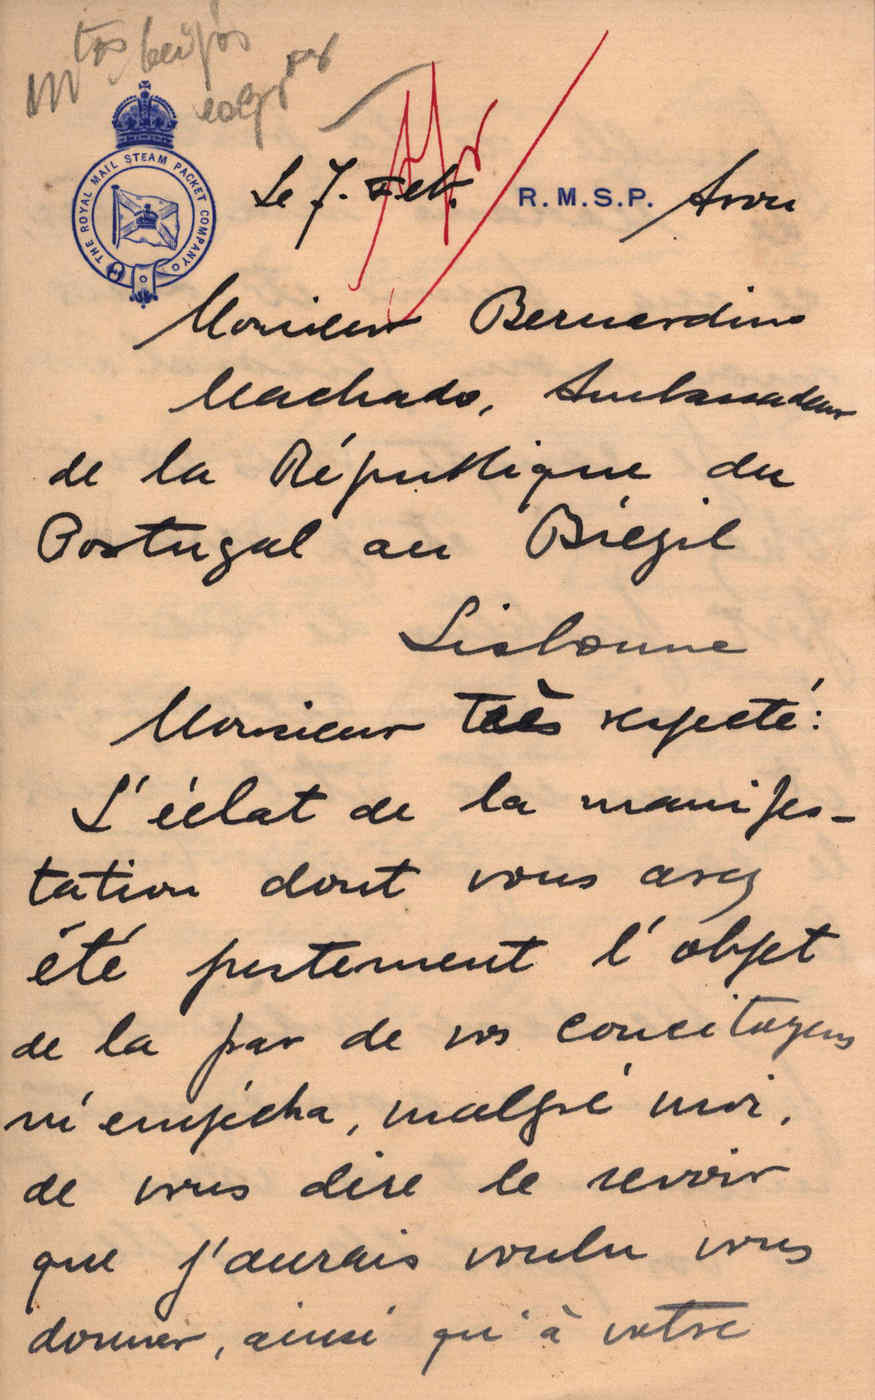 THE ROYAL MAIL STEAM PACKET COMPANY
Le 7. Feb. R.M.S.P. Avon
Monsieur Bernardino
Machado, Ambassadeur
de la République du
Portugal au Brézil
Lisbonne
Monsieur très respecté:
L'éclat de la manifes-
tation dont vous avez
été justement l'objet
de la par de vos concitoyens
m'empêcha, malgré moi,
de vous dire le revoir
que j'aurais voulu vous
donner, ainsi qu'à votre